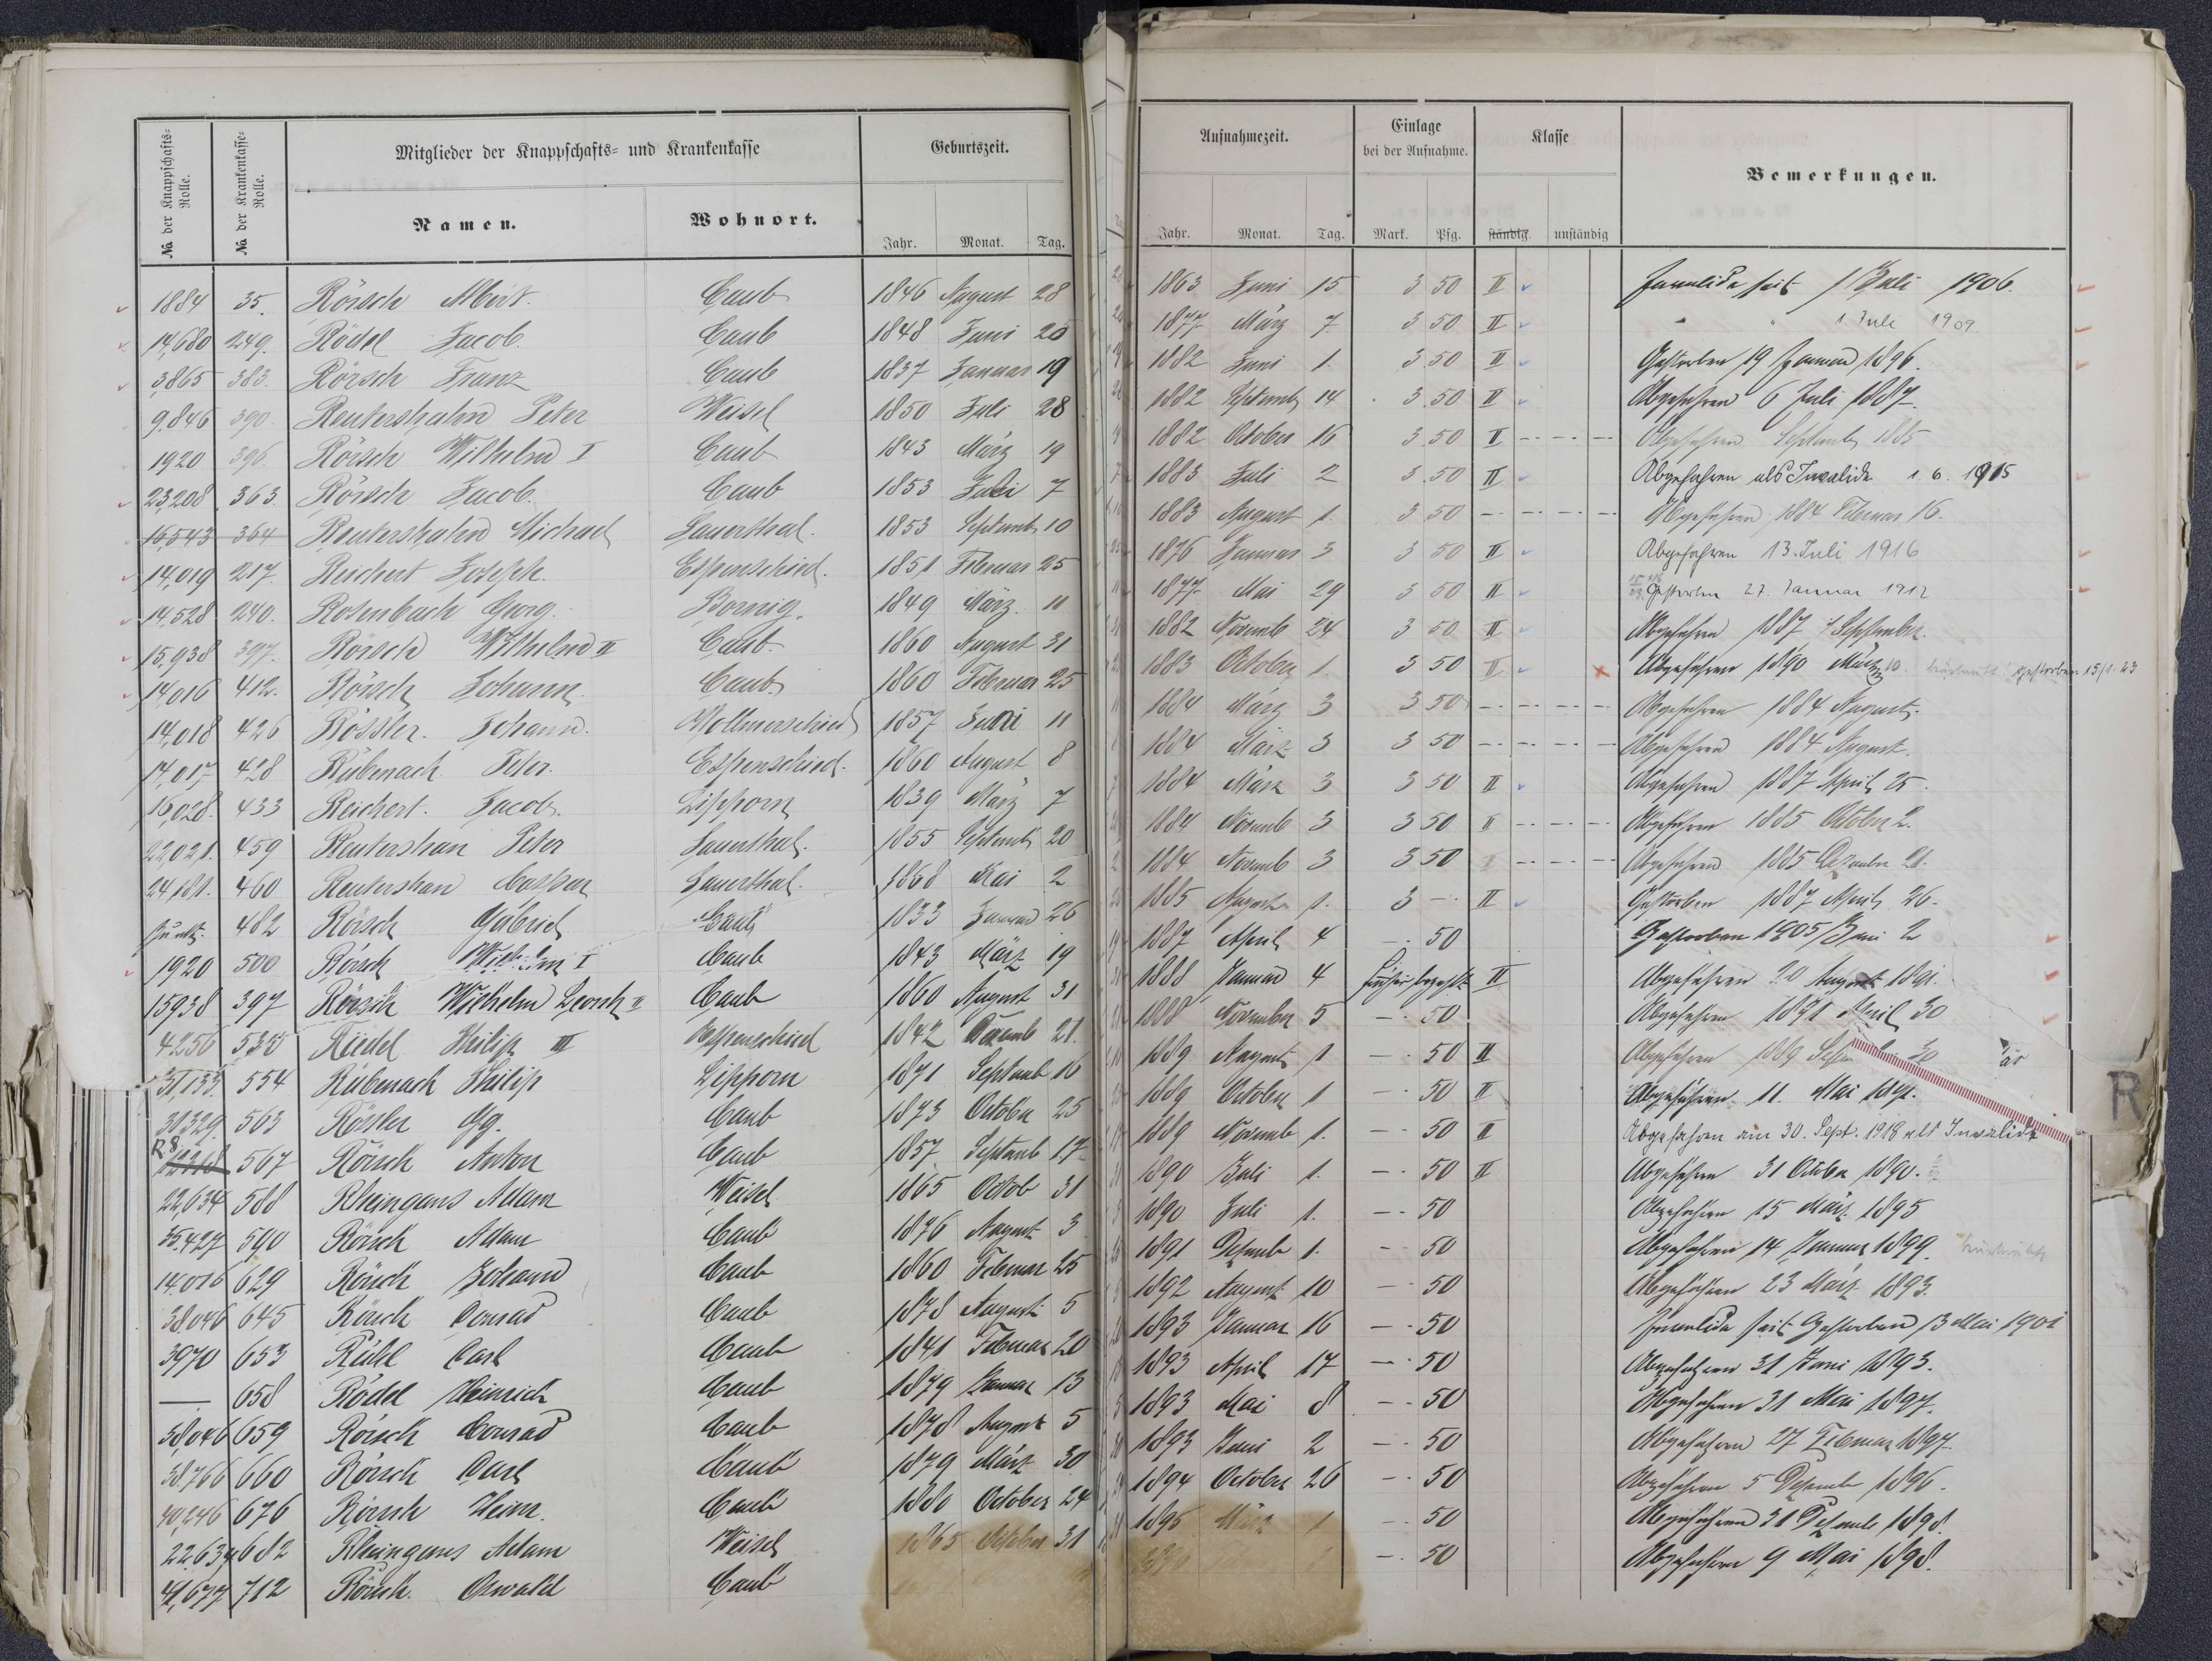 No. der Knappschafts-Rolle.
No. der Krankenkasse-Rolle.
Mitglieder der Knappschafts- und Krankenkasse
Namen.
Wohnort.
Geburtszeit.
Jahr. Monat. Tag.
Aufnahmezeit.
Jahr. Monat. Tag.
Einlage bei der Aufnahme.
Mark. Pfg.
Klasse
ständig. unständig
Bemerkungen.
1884 35. Rörsch Caub 1846 August 28 1863 Juni 15 3 50 II Invalide seit 1 Juli 1906.
14,680 249. Rödel Jacob. Caub 1848 Juni 20 1877 März 7 3 50 II " " 1 Juli 1909.
3,865 383. Rörsch Franz Caub 1837 Januar 19 1882 Juni 1. 3.50 II Gestorben 19 Januar 1896.
9,846 390. Reutershahn Peter Weisel 1850 Juli 28 1882 Septemb 14 3.50 II Abgefahren 6 Juli 1887.
1920 396. Rörsch Wilhelm I Caub 1843 März 19 1882 October 16 3.50 II Abgefahren Septemb 1885
23,208 363. Rörsch Jacob. Caub 1853 7 1883 Juli 2 3.50 II Abgefahren als Invalide 1. 6. 1915
16,543 364 Reutershahn Michael Sauerthal. 1853 Septemb 10 1883 August 1. 3 50 Abgefahren 1884 Februar 16.
14,019 217. Reichert Joseph. Espenschied. 1851 Februar 25 1876 Januar 3 3 50 II Abgefahren 13. Juli 1916
14,528 240. Rosenbach Georg. Bornig. 1849 März. 11 1877 Mai 29 3 50 II Gestorben 27. Januar 1912
15,938 397. Rörsch Wilhelm II Caub. 1860 August 31 1882 Novemb 24 3 50 II Abgefahren 1887 1 September.
14,016 412. Rörsch Johann. Caub 1860 Februar 25 1883 October 1. 3 50 II Abgefahren 1890 März 10. gestorben 15/1. 23
14,018 426 Rössler. Johann. Wollmerschied 1857 11 1884 März 3 3 50 Abgefahren 1884 August.
14,017 428 Rübenach Peter. Espenschied. 1860 August 8 1884 März 3 3 50 Abgefahren 1884 August.
16,028. 433 Reichert. Jacob. Lipporn 1839 März 7 1884 März 3 3 50 II Abgefahren 1887 April 25.
22,021. 459 Reutershan Peter Sauerthal. 1855 Septemb 20 1884 Novemb 3 3 50 II Abgefahren 1885 October 2.
24,181. 460 Reutershan Caspar Sauerthal. 1868 Mai 2 1884 Novemb 3 3 50 Abgefahren 1885 Dezember 21.
482 Rörsch Gabriel Caub 1833 Januar 26 1885 August 1. 3 — II Gestorben 1887 April 26.
1920 500 Rörsch Wilhelm I Caub 1843 März 19 1887 April 4 — 50 Gestorben 1905 Juni 2
15938 397 Rörsch Wilhelm II Caub 1860 August 31 1888 Januar 4 früher bezahlt II Abgefahren 20 August 1891.
4256 535 Riedel Philip III Espenschied 1842 21. 1888 November 5 — 50 Abgefahren 1891 April 30
31,133. 554 Rübenach Philip Lipporn 1871 Septemb 16 1889 August 1 — 50 II Abgefahren 1889 30
30,329. 563 Rösler Gg. Caub 1873 October 25 1889 October 1 — 50 II Abgefahren 11. Mai
R8 567 Rörsch Anton Caub 1857 Septemb 17 1889 Novemb 1. — 50 II Abgefahren am 30. Sept. 1918 als Invalide
22,634 588 Rheingans Adam Weisel 1865 Octob 31 1890 Juli 1. — 50 II Abgefahren 31 October 1890.
35.427 590 Rörsch Adam Caub 1876 August 3 1890 Juli 1. — 50 Abgefahren 15 März 1895
14.016 629 Rörsch Johann Caub 1860 Februar 25 1891 Dezemb 1. — 50 Abgefahren 14 Januar 1899.
38,046 645 Rörsch Conrad Caub 1878 August 5 1892 August 10 — 50 Abgefahren 23 März 1893.
3970 653 Rühl Carl Caub 1841 Februar 20 1893 Januar 16 — 50 Invalide seit Gestorben 13 Mai 1901
— 658 Rödel Heinrich Caub 1879 Januar 13 1893 April 17 — 50 Abgefahren 31 Juni 1893.
38,046 659 Rörsch Conrad Caub 1878 August 5 1893 Mai 8 — 50 Abgefahren 31 Mai 1897.
38,766 660 Rörsch Carl Caub 1879 März 30 1893 Juni 2 — 50 Abgefahren 27 Februar 1897.
40,246 676 Rörsch Heinr. Caub 1880 October 24 1894 October 26 — 50 Abgefahren 5 Dezemb 1896.
22634 682 Rheingans Adam Weisel 1865 October 31 1895 März 1 — 50 Abgefahren 31 Dezemb 1898.
41,677 712 Rörsch. Oswald Caub — 50 Abgefahren 9 Mai 1898.
R